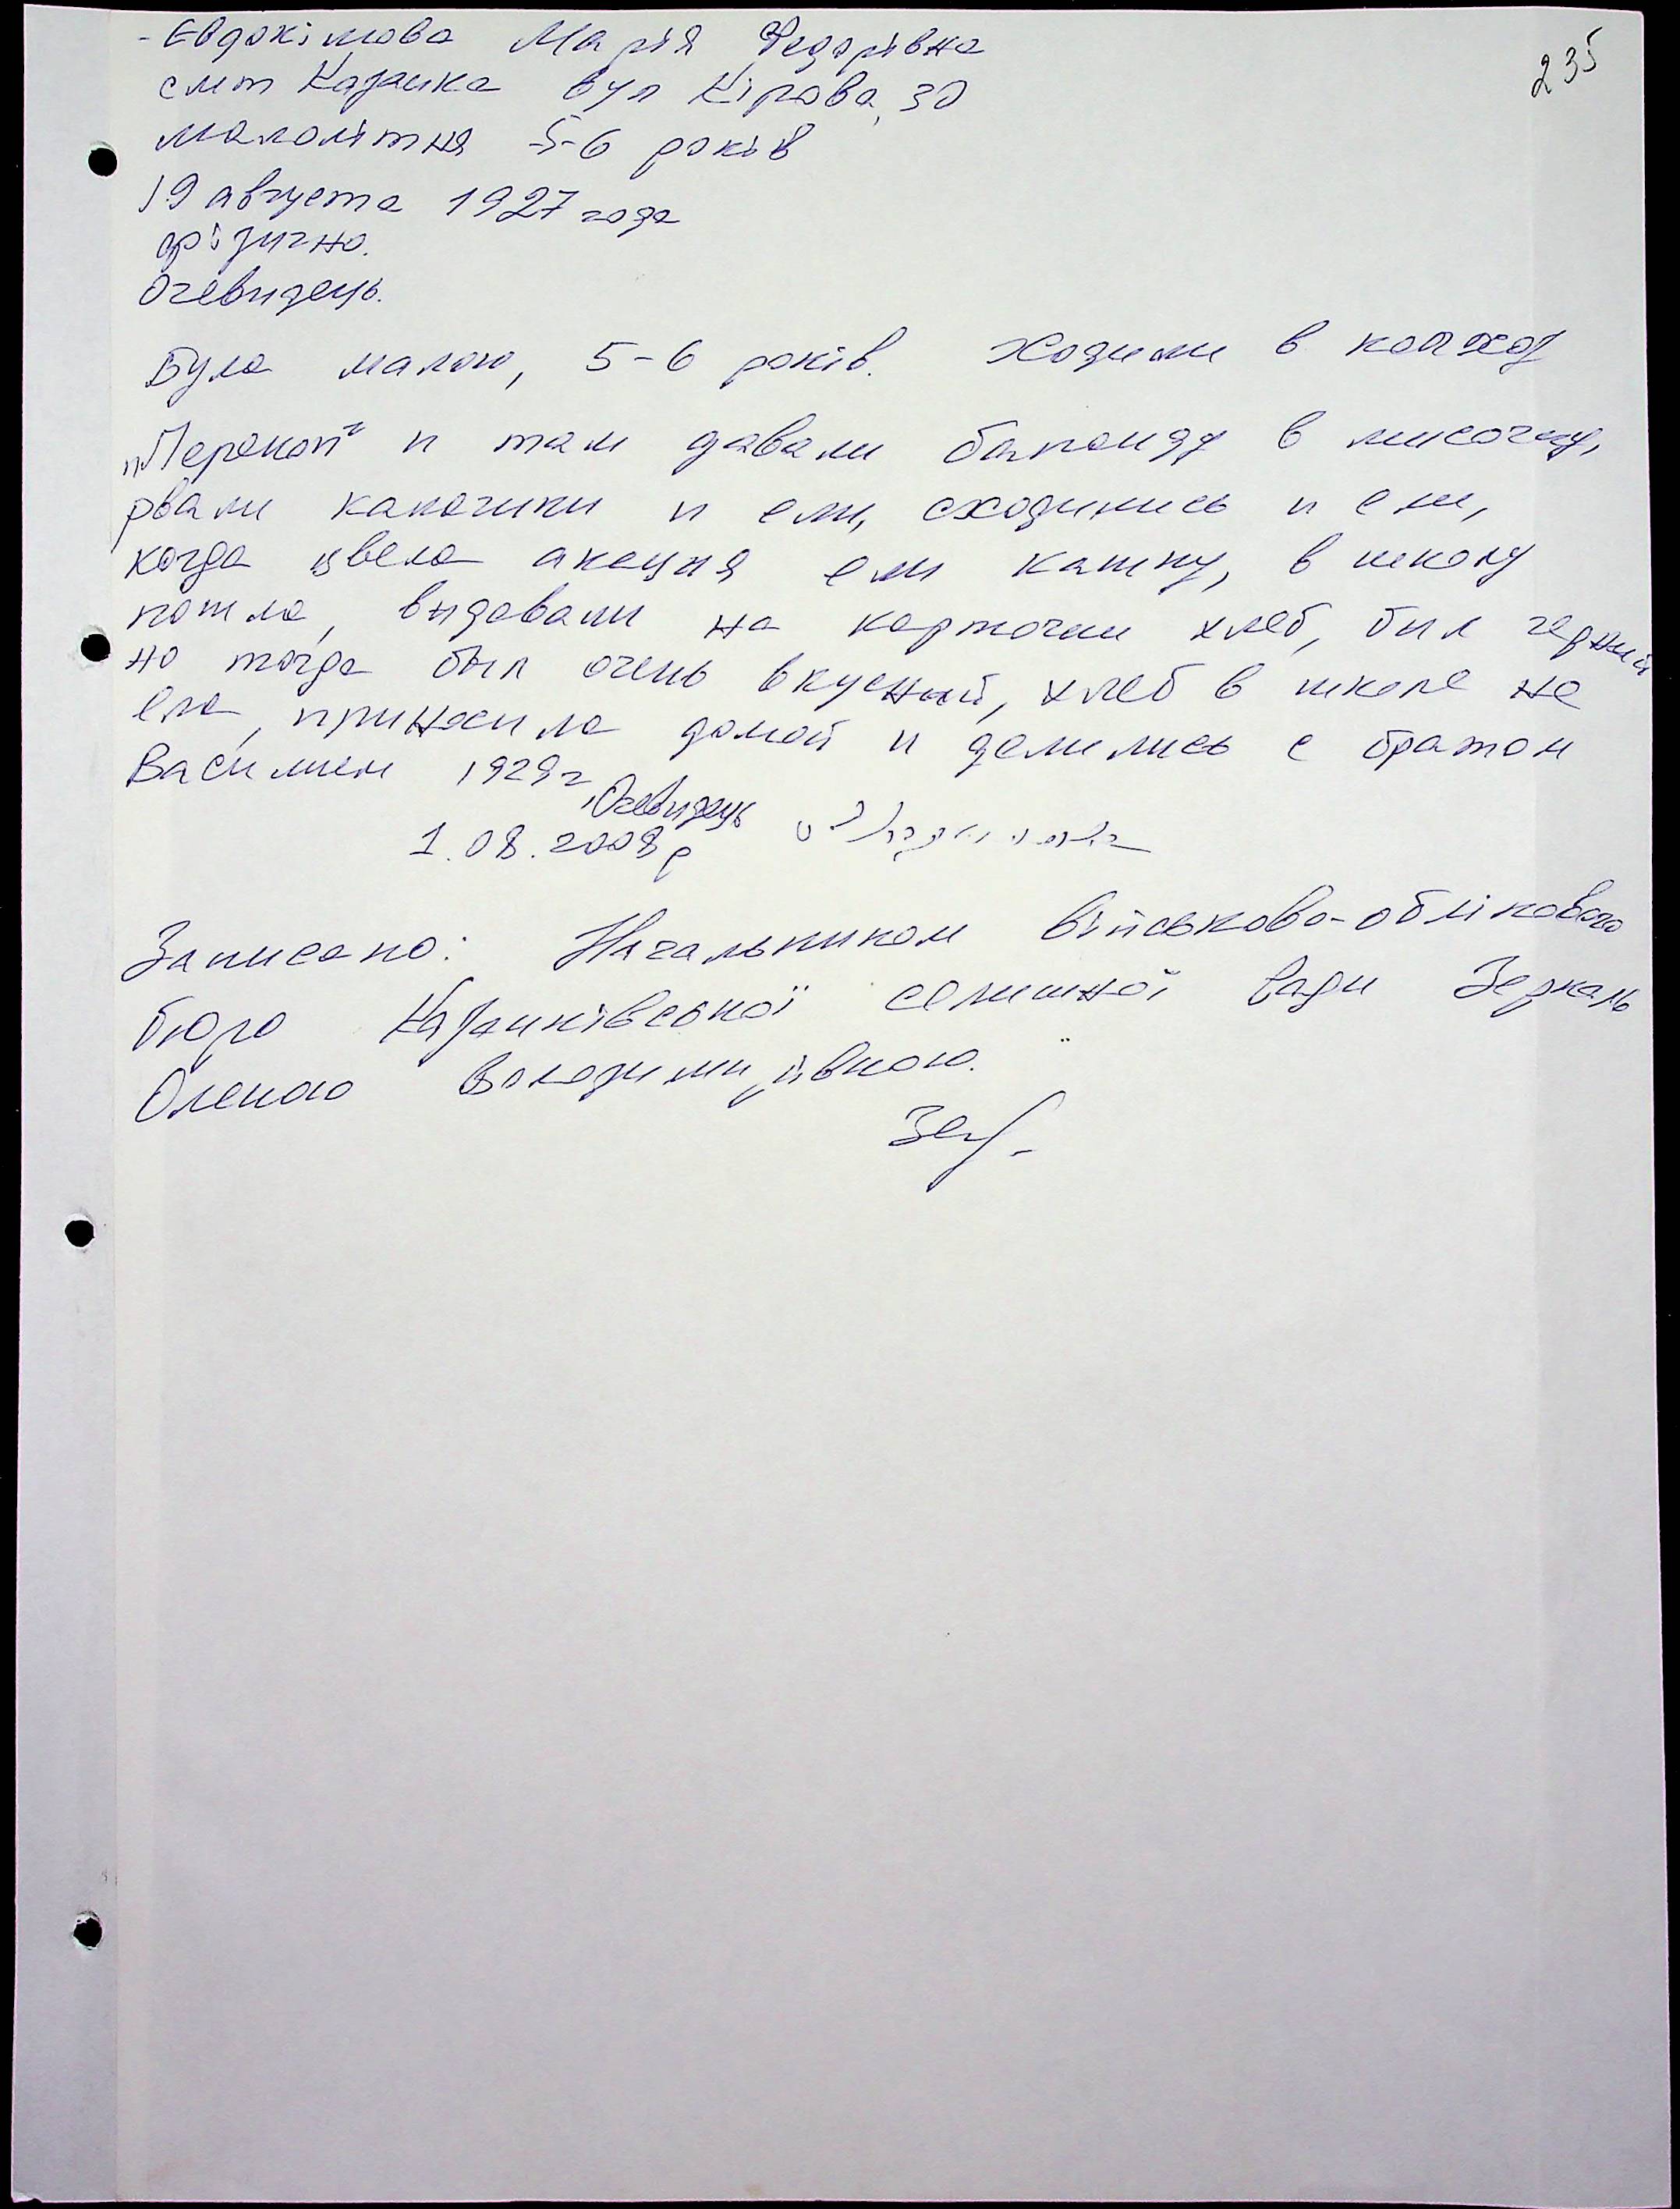 235
- Євдокімова Марія Федорівна
смт Казанка вул Кірова, 30
малолітня 5-6 років
19 августа 1927 года
фізично.
Очевидець.
Була малою, 5-6 років. Ходили в колхоз
„Перекоп" и там давали баланду в мисочку,
рвали калачики и ели, сходились и ели,
когда цвела акация ели кашку, в школу
пошла, выдавали на карточки хлеб, был черный
но тогда был очень вкусный, хлеб в школе не
ела, приносила домой и делились с братом
Василием 1929г.
Очевидець
1.08.2008р
Записано: Начальником військово-облікового
бюро Казанківської селишної ради Зеркаль
Оленою Володимирівною.